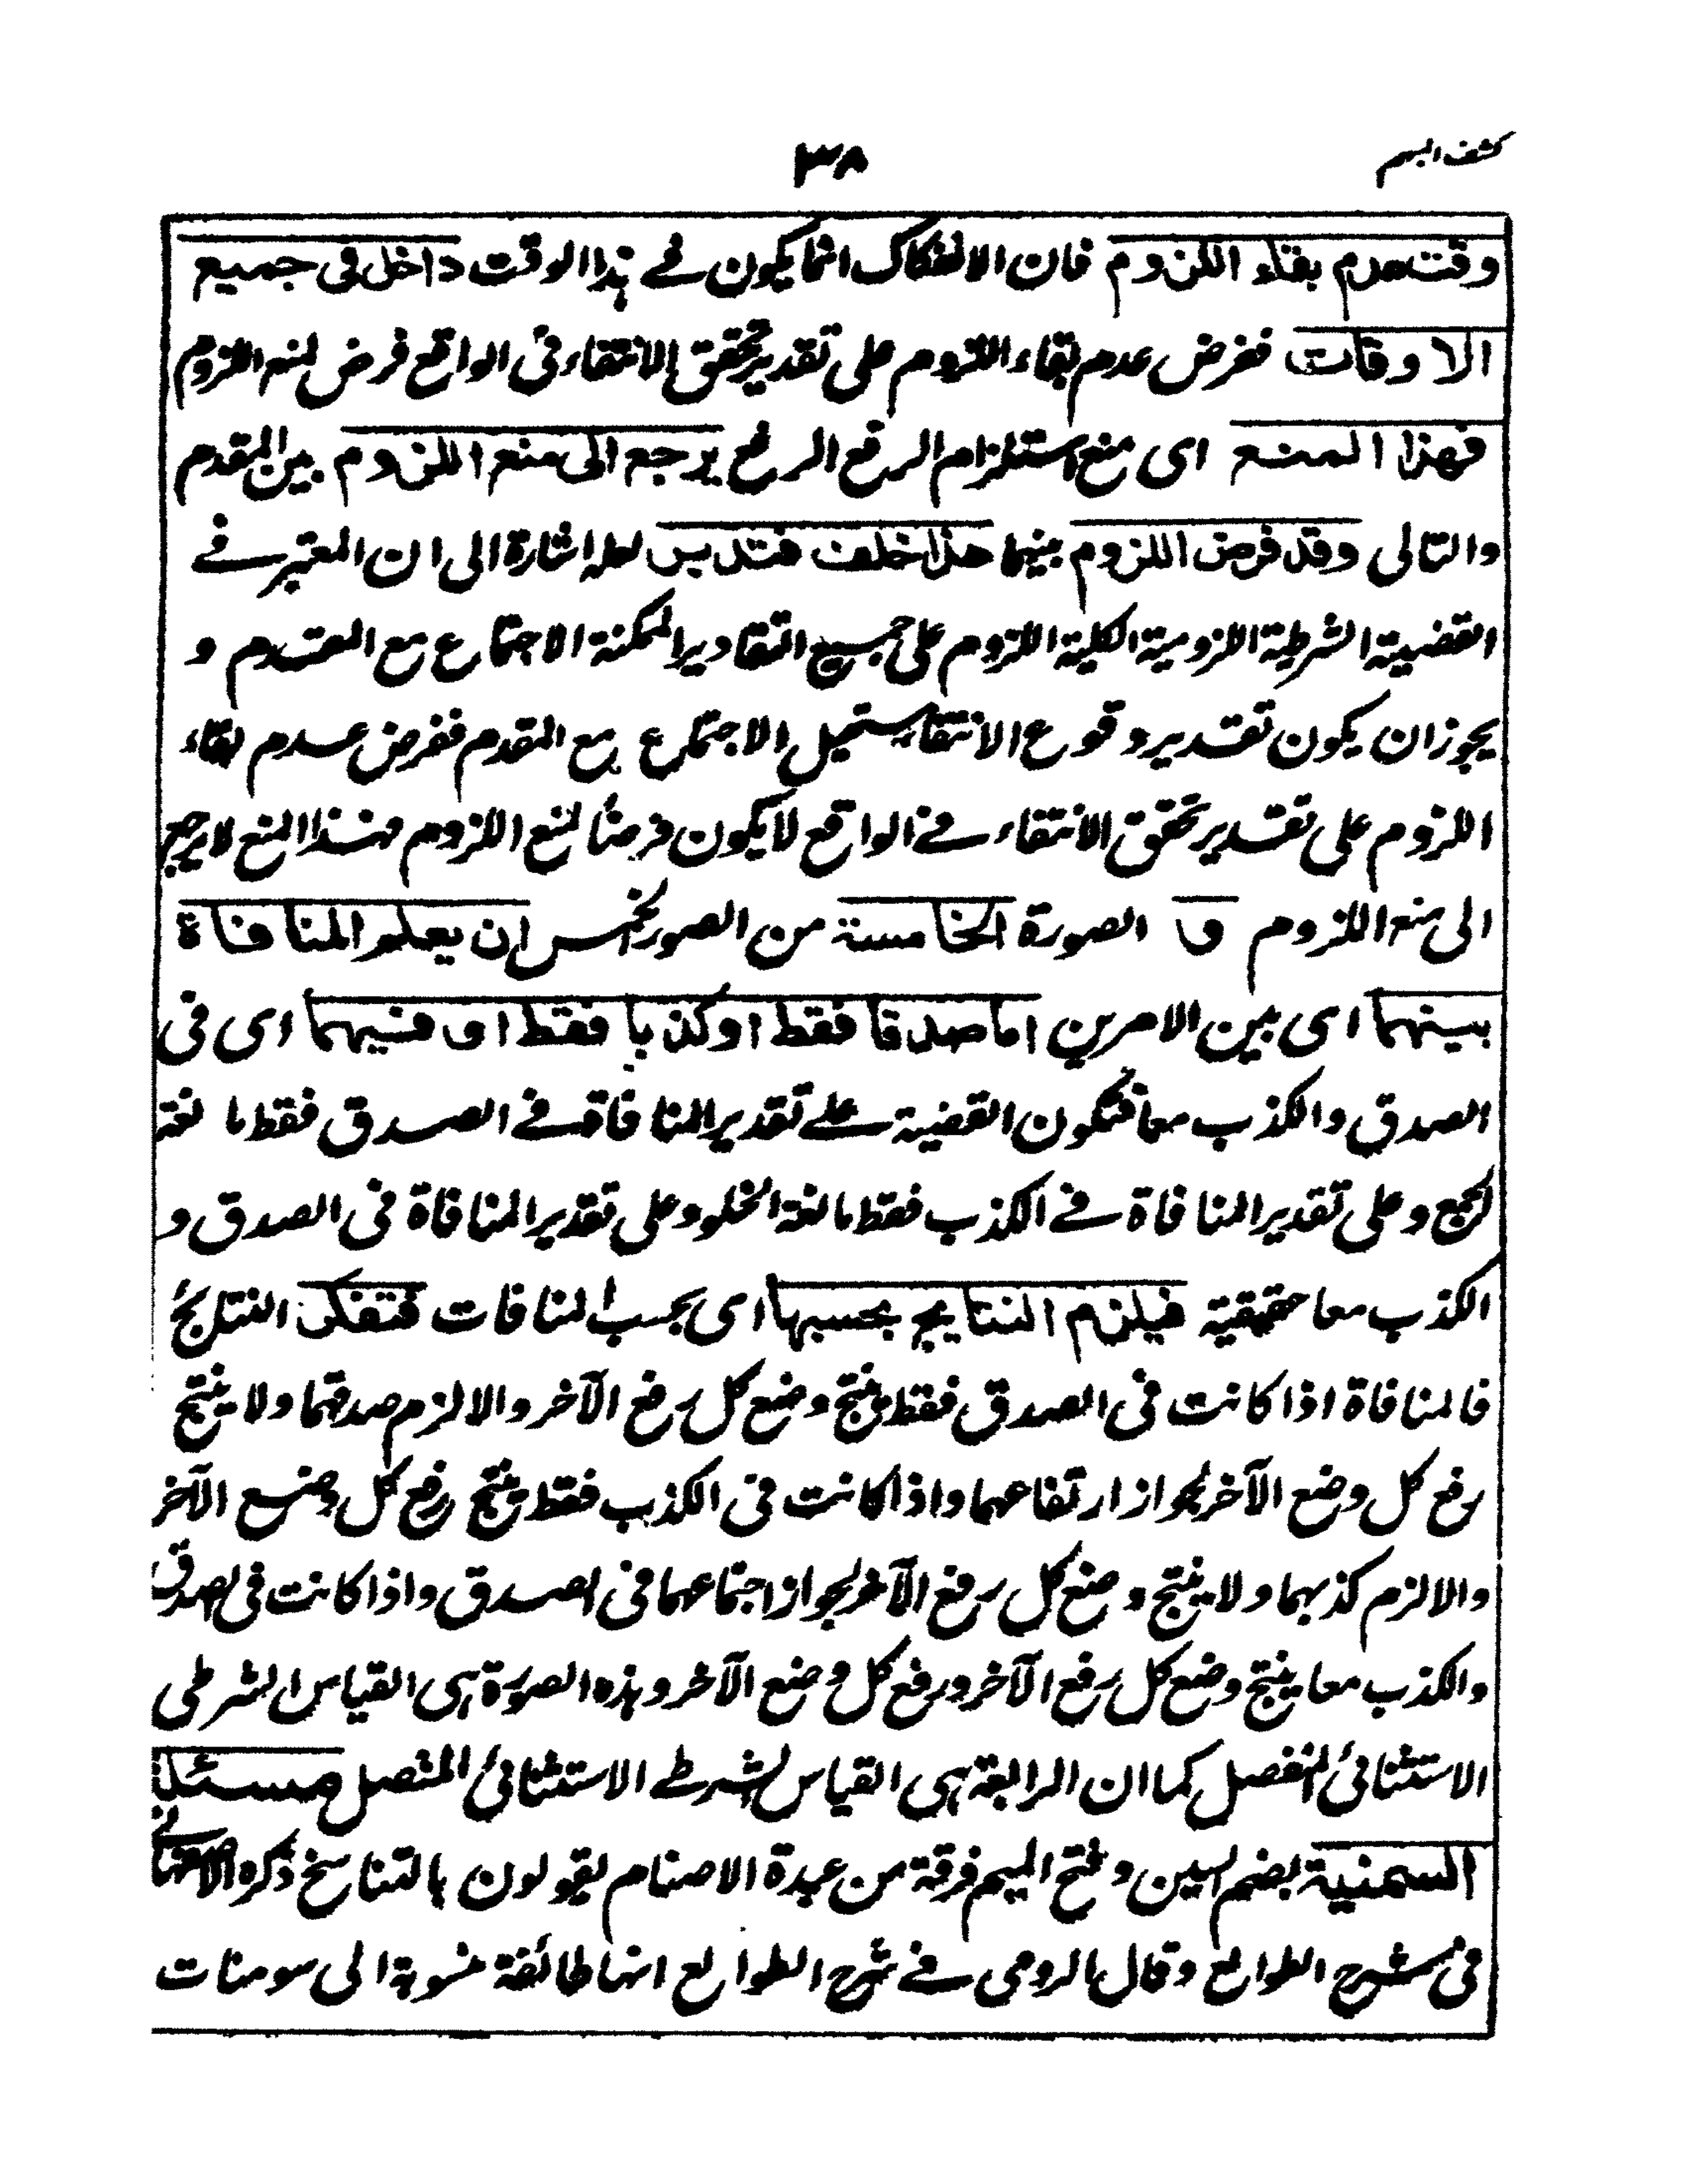 كشف المبهم
٣٨
وقت عدم بقاء اللزوم فان الانفكاك انما يكون في هذا الوقت داخل في جميع
الاوقات ففرض عدم بقاء اللزوم على تقدير تحقق الانتفاء في الواقع فرض لمنع اللزوم
فهذا المنع اى منع استلزام الرفع الرفع يرجع الى منع اللزوم بين المقدم
والتالى وقد فرض اللزوم بينهما هذا خلف فتدبر لعله اشارة الى ان المعتبر في
القضية الشرطية اللزومية الكلية اللزوم على جميع التقادير الممكنة الاجتماع مع المقدم و
يجوز ان يكون تقدير وقوع الانتفاء يستحيل الاجتماع مع المقدم ففرض عدم بقاء
اللزوم على تقدير تحقق الانتفاء في الواقع لا يكون فرضا لمنع اللزوم فهذا المنع لا يرجع
الى منع اللزوم و الصورة الخامسة من الصور الخمس ان يعلم المنافاة
بينهما اى بين الامرين اما صدقا فقط او كذبا فقط او فيهما اى فى
الصدق والكذب معا فتكون القضية على تقدير المنافاة في الصدق فقط مانعة
الجمع وعلى تقدير المنافاة في الكذب فقط مانعة الخلو وعلى تقدير المنافاة في الصدق و
الكذب معا حقيقية فيلزم النتايج بحسبها اى بحسب المنافات فتفكر النتايج
فالمنافاة اذا كانت في الصدق فقط ينتج وضع كل رفع الآخر والا لزم صدقهما ولا ينتج
رفع كل وضع الآخر لجواز ارتفاعهما واذا كانت في الكذب فقط ينتج رفع كل وضع الآخر
والا لزم كذبهما ولا ينتج وضع كل رفع الآخر لجواز اجتماعهما في الصدق واذا كانت في الصدق
والكذب معا ينتج وضع كل رفع الآخر ورفع كل وضع الآخر وهذه الصورة هى القياس الشرطى
الاستثنائى المنفصل كما ان الرابعة هى القياس الشرطے الاستثنائى المتصل مسئلة
السمنية بضم السين وفتح الميم فرقة من عبدة الاصنام يقولون بالتناسخ ذكره الاصفهانے
فى شرح الطوالع وقال الرومى في شرح الطوالع انها طائفة منسوبة الى سومنات